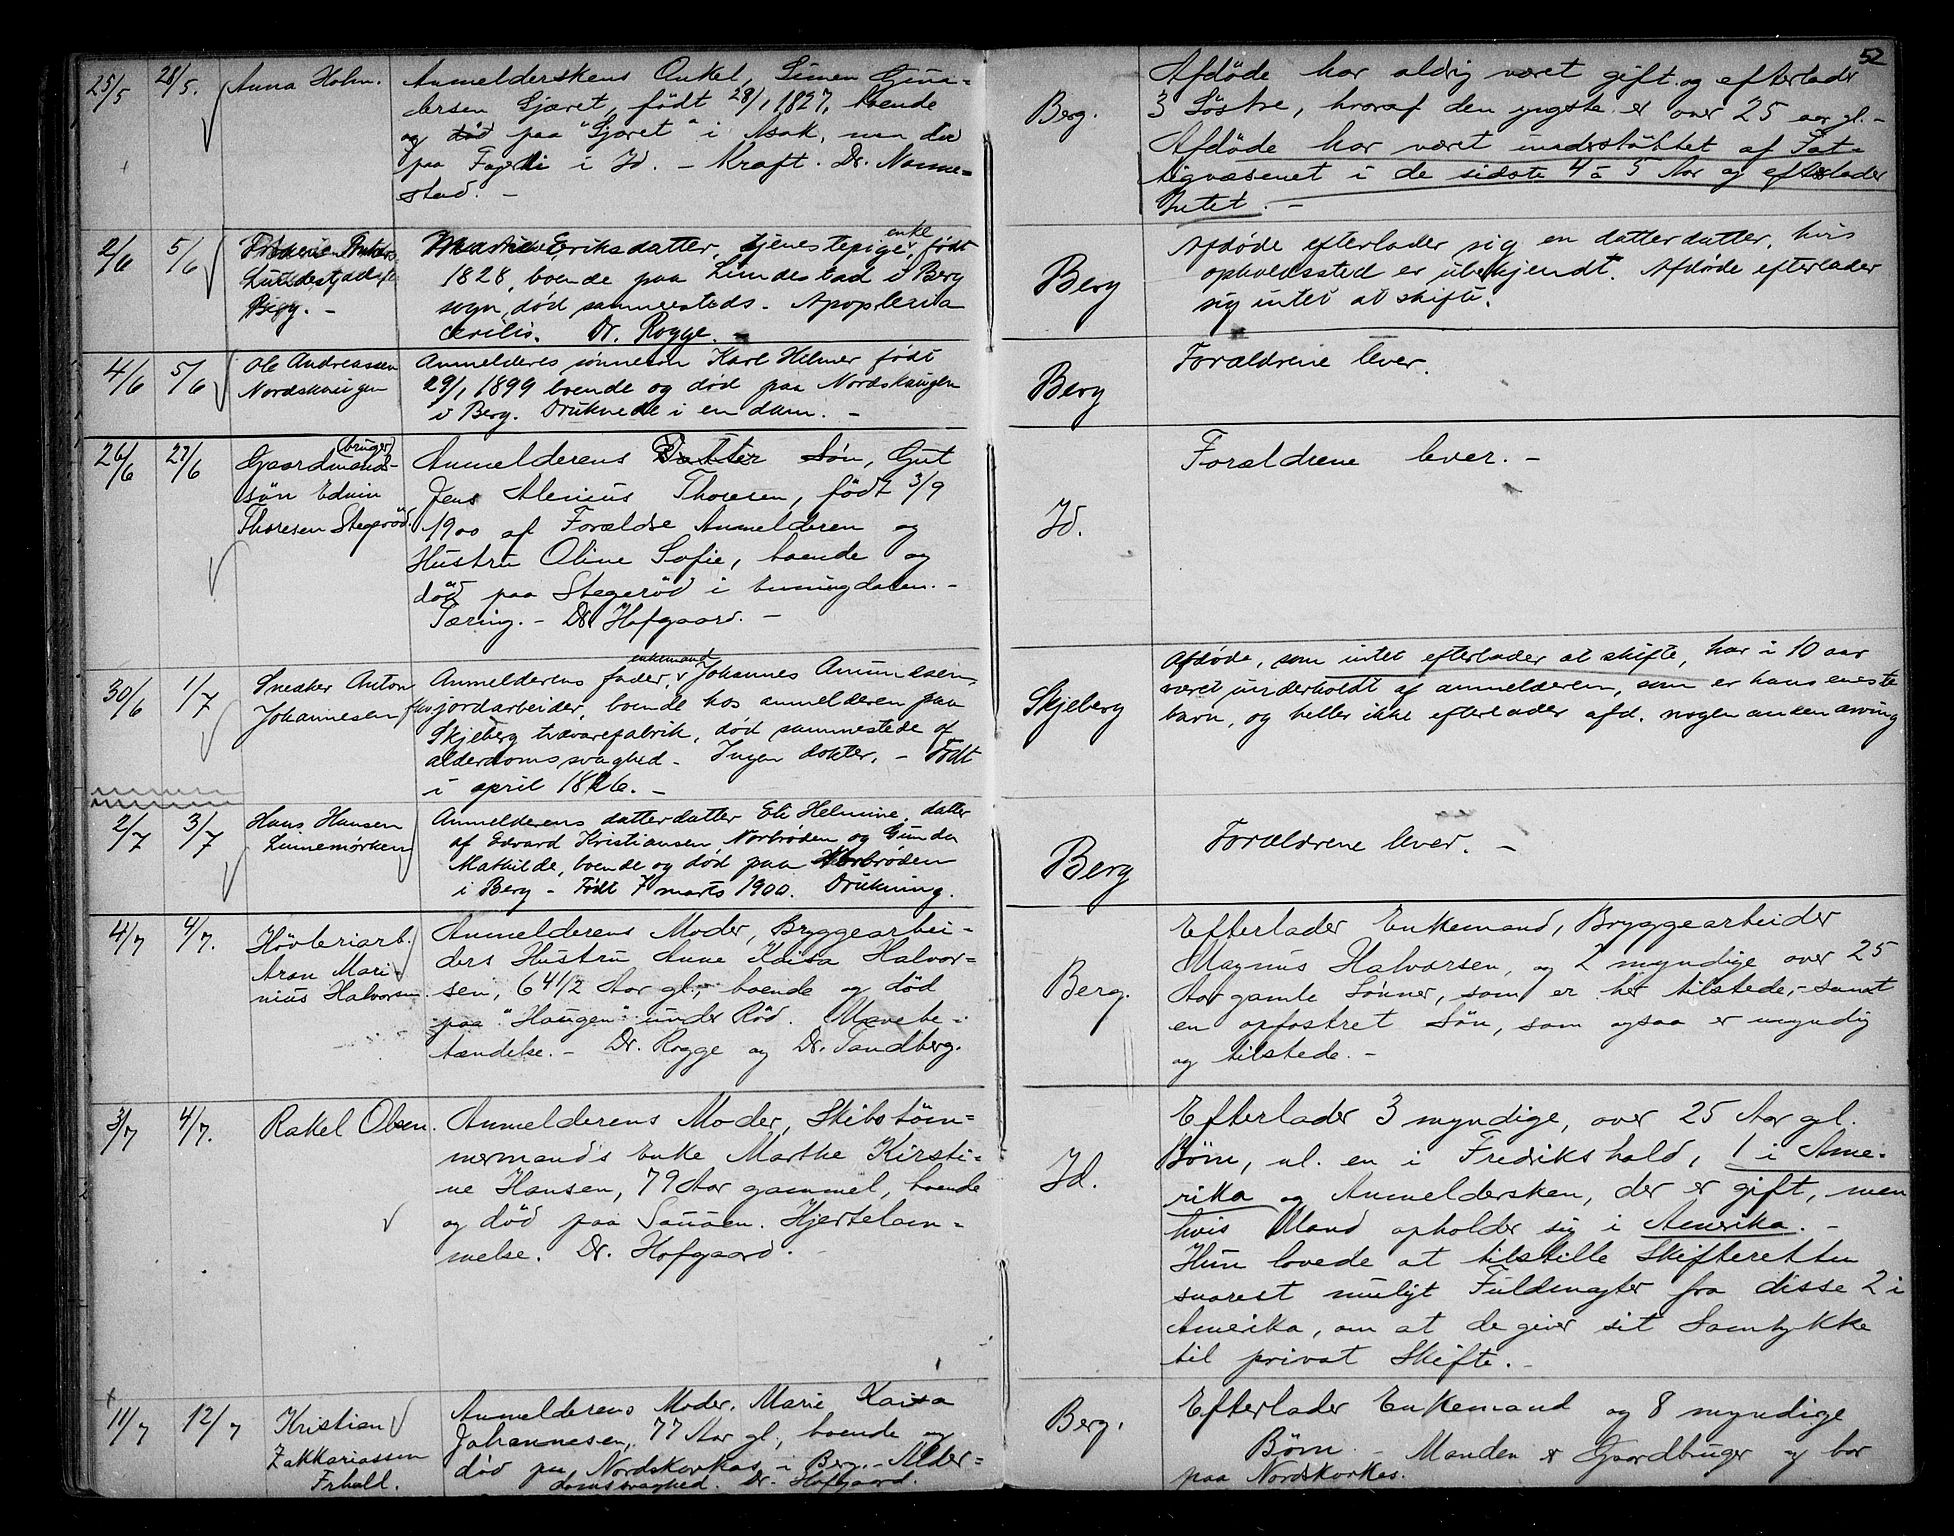 52
25/5 28/5. Anna Holm.
Anmelderskens Onkel, Simen Gun-
dersen Gjæret, født 28/1 1827, boende
og død paa "Gjæret" i Asak, men død
paa i Id. - Kraft. Dr. Nanne-
stad. -
Berg.
Afdøde har aldrig været gift og efterlader
3 Søstre, hvoraf den yngste er over 25 aar gl. -
Afdøde har været understøttet af Fat-
tigvæsenet i de sidste 4 à 5 Aar og efterlader
Intet. -
2/6 5/6
Berg. -
Eriksdatter, tjenestepige, enke, født
1828, boende paa Lundestad i Berg
sogn, død sammesteds. Apoplexia
cerebis. Dr. Rogge. -
Berg
Afdøde efterlader sig en datterdatter, hvis
opholdssted er ubekjendt. Afdøde efterlader
sig intet at skifte.
4/6 5/6 Ole Andreassen
Nordskaugen
Anmelderes sønnesøn Karl Helmer født
29/1 1899 boende og død paa Nordskaugen
i Berg. Druknede i en dam. -
Berg
Forældrene lever.
26/6 27/6 Gaardmands- bruger
søn Edvin
Thoresen Stegerød.
Anmelderens Datter Søn, Gut
Jens Alenius Thoresen, født 3/9
1900 af Forældre Anmelderen og
Hustru Oline Sofie, boende og
død paa Stegerød i Enningdalen. -
Tæring. - Dr. Hofgaard. -
Id.
Forældrene lever. -
30/6 1/7 Snedker Anton
Johannesen
Anmelderens fader, enkemand Johannes Amundsen
jordarbeider, boende hos anmelderen paa
Skjeberg trævarefabrik, død sammestede af
alderdomssvaghed. - Ingen dokter. - Født
i april 1826. -
Skjeberg
Afdøde, som intet efterlader at skifte, har i 10 aar
været underholdt af anmelderen, som er hans eneste
barn, og heller ikke efterlader afd. nogen anden arving
2/7 3/7 Hans Hansen
Linnemørken
Anmelderens datterdatter Eli Helmine, datter
af Edvard Kristiansen Norbrøden og Gunda
Mathilde, boende og død paa Norbrøden
i Berg - Født 7 marts 1900. Drukning.
Berg
Forældrene lever. -
4/7 4/7. Høvleriarb.
Aron Mari-
nius Halvorsen
Anmelderens Moder, Bryggearbei-
ders Hustru Anne Kaisa Halvor-
sen, 64 1/2 Aar gl., boende og død
paa "Haugen" under Rød. Mavebe-
tændelse. - Dr. Rogge og Dr. Sandberg.
Berg.
Efterlader Enkemand, Bryggearbeider
Magnus Halvorsen, og 2 myndige over 25
Aar gamle Sønner, som er her tilstede, - samt
en opfostret Søn, som ogsaa er myndig
og tilstede. -
3/7 4/7. Rakel Olsen.
Anmelderens Moder, Skibstøm-
mermands Enke Marthe Kirsti-
ne Hansen, 79 Aar gammel, boende
og død paa Sauøen. Hjertelam-
melse. Dr. Hofgaard. -
Id.
Efterlader 3 myndige, over 25 Aar gl.
Børn, nl. en i Fredrikshald, 1 i Ame-
rika og Anmeldersken, der er gift, men
hvis Mand opholder sig i Amerika. -
Hun lovede at tilstille Skifteretten
snarest muligt Fuldmagter fra disse 2 i
Amerika, om at de giver sit Samtykke
til privat Skifte. -
11/7 12/7 Kristian
Zakkariassen
Frhald.
Anmelderens Moder, Marie Kaisa
Johannesen, 77 Aar gl., boende og
død paa Nordskorkas i Berg. - Alder-
domssvaghed. Dr. Hofgaard.
Berg.
Efterlader Enkemand og 8 myndige
Børn. - Manden er Gaardbruger og bor
paa Nordskorkas.